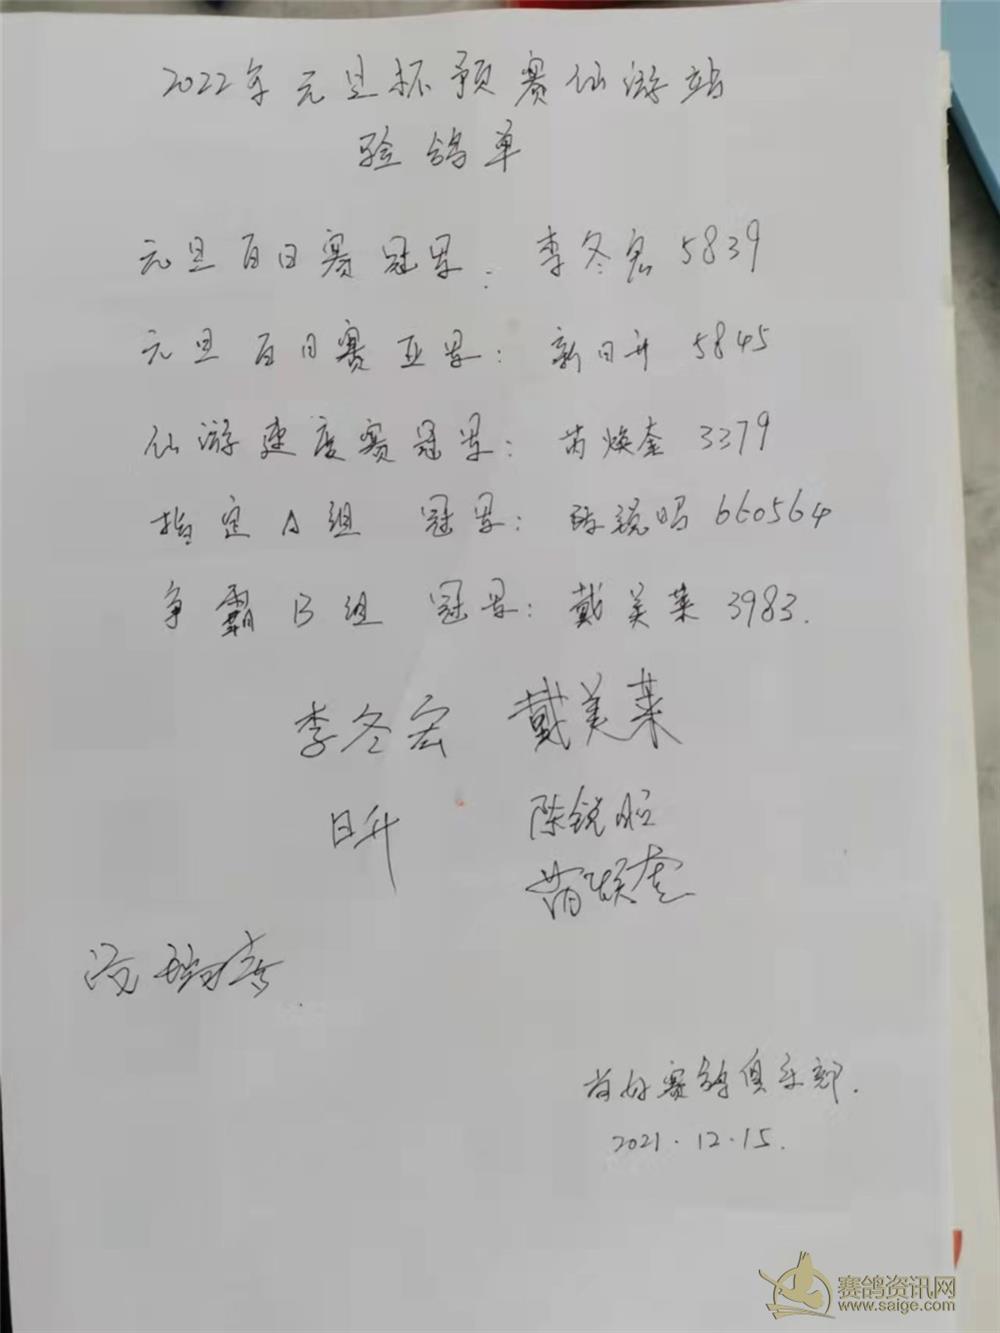 2022年元旦杯预赛仙游站
验鸽单
元旦百日赛冠军：李冬宏 5839
元旦百日赛亚军：新日升 5845
仙游速度赛冠军：芮焕奎 3379
指定A组 冠军：陈锐明 660564
争霸B组 冠军：戴美莱 3983.
李冬宏 戴美莱
日升 陈锐
芮焕奎
赛鸽俱乐部.
2021.12.15.
赛鸽资讯网
www.saige.com